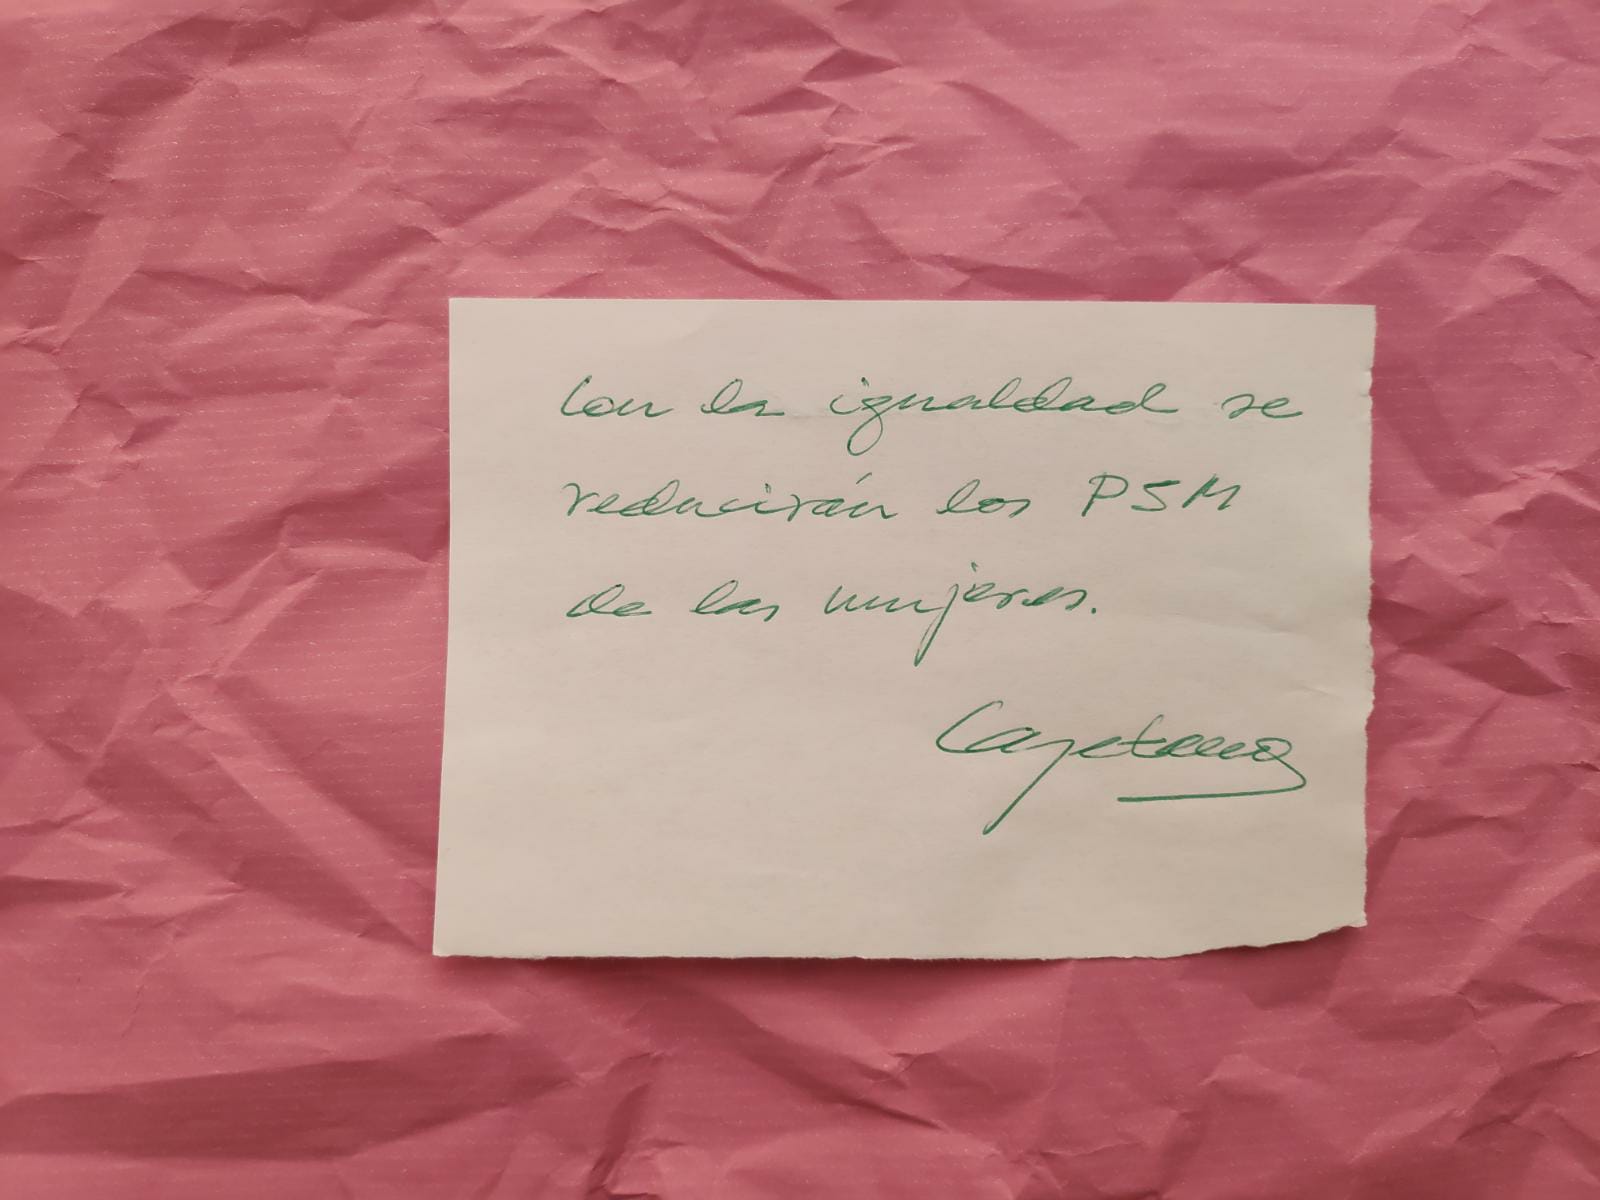 Con la igualdad se
reducirán los PSM
de las mujeres.
Cayetano